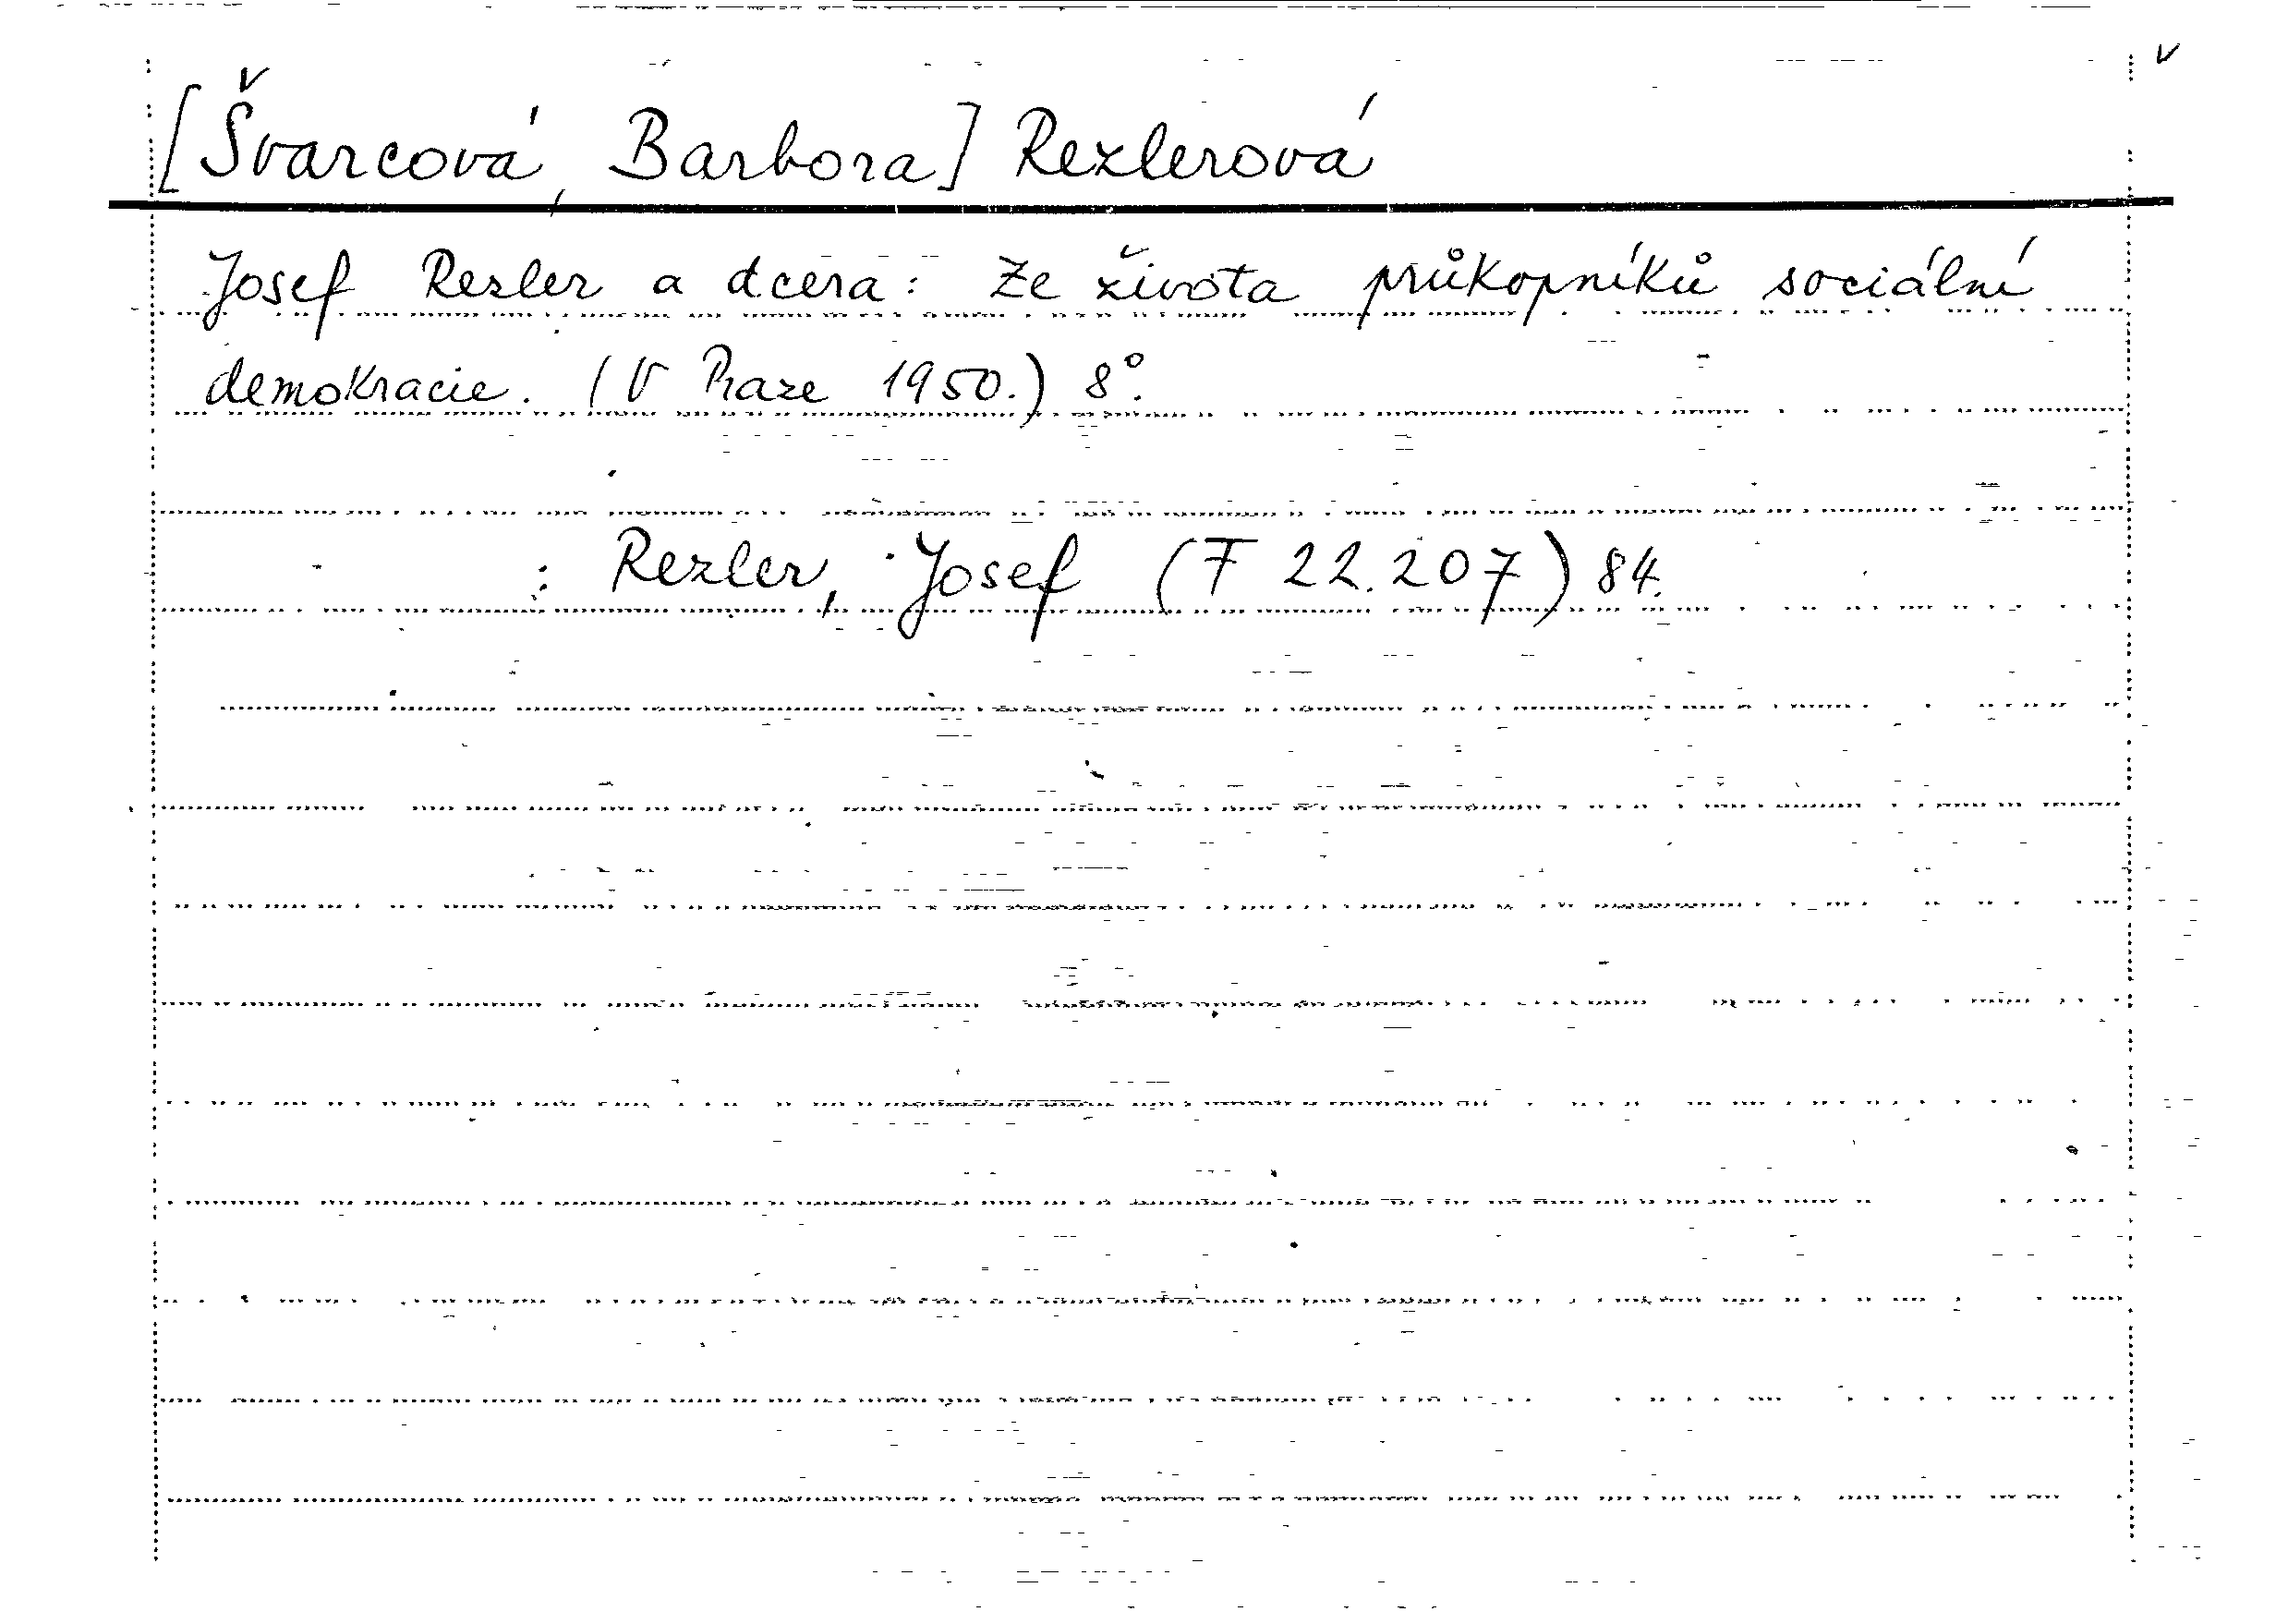 v
[Švarcová, Barbora] Rezlerová
Josef Rezler a dcera: Ze života průkopníků sociální
demokracie. (V Praze 1950.) 8°.
: Rezler, Josef (F 22.207) 84.